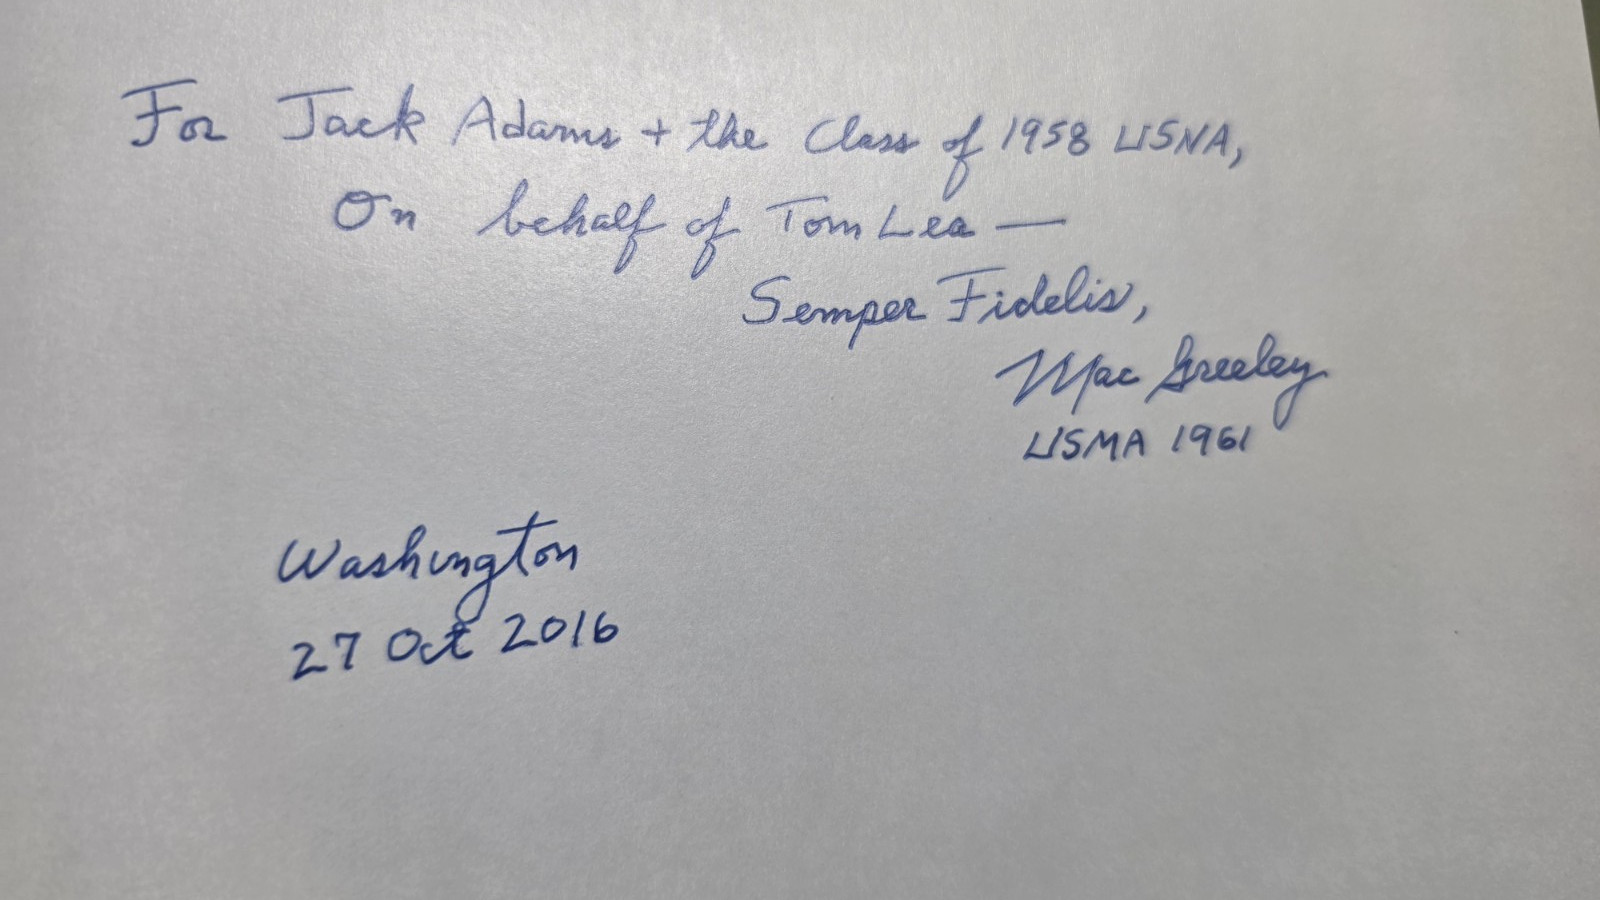 For Jack Adams + the Class of 1958 USNA,
On behalf of Tom Lea —
Semper Fidelis,
Mac Greeley
USMA 1961
Washington
27 Oct 2016